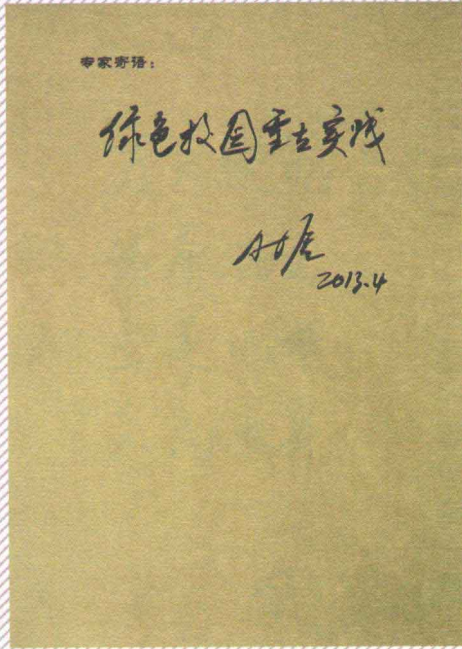 专家寄语：
绿色校园重在实践
2013.4